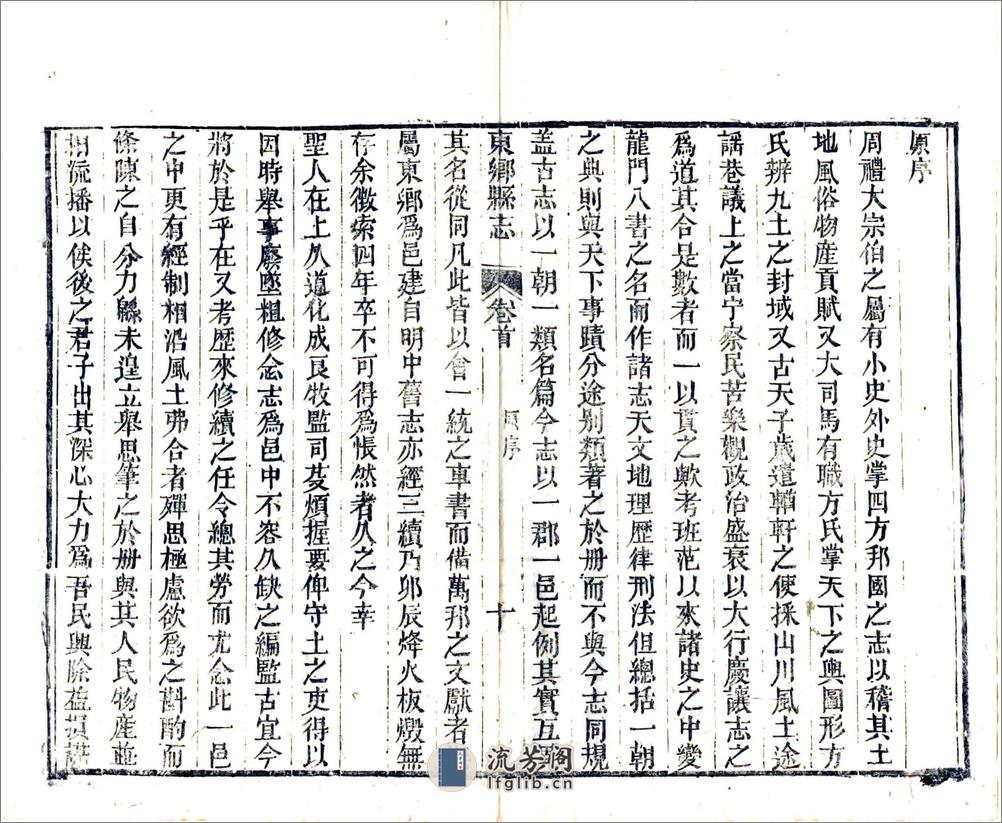 原序
周禮大宗伯之屬有小史外史掌四方邦國之志以稽其土
地風俗物產貢賦又大司馬有職方氏掌天下之輿圖形方
氏辨九土之封域又古天子歲遣輶軒之使採山川風土途
謡巷議上之當宁察民苦樂觀政治盛衰以大行慶讓志之
爲道其合是數者而一以貫之歟考班范以來諸史之中變
龍門八書之名而作諸志天文地理歷律刑法但總括一朝
之典則與天下事蹟分途别類著之於册而不與今志同規
盖古志以一朝一類名篇今志以一郡一邑起例其實互
東鄉縣志
卷首
原序
十
其名從同凡此皆以會一統之車書而備萬邦之文獻者
屬東鄉爲邑建自明中舊志亦經三續乃卯辰烽火板燬無
存余徵索四年卒不可得爲悵然者久之今幸
聖人在上久道化成良牧監司芟煩握要俾守土之吏得以
因時舉事廢墜粗修念志爲邑中不容久缺之編監古宜今
將於是乎在又考歷來修續之任令總其勞而尤念此一邑
之中更有經制相沿風土弗合者殫思極慮欲爲之斟酌而
條陳之自分力緜未遑立舉思筆之於册與其人民物產並
相流播以俟後之君子出其深心大力爲吾民興除益損講
流芳阁
lfglib.cn